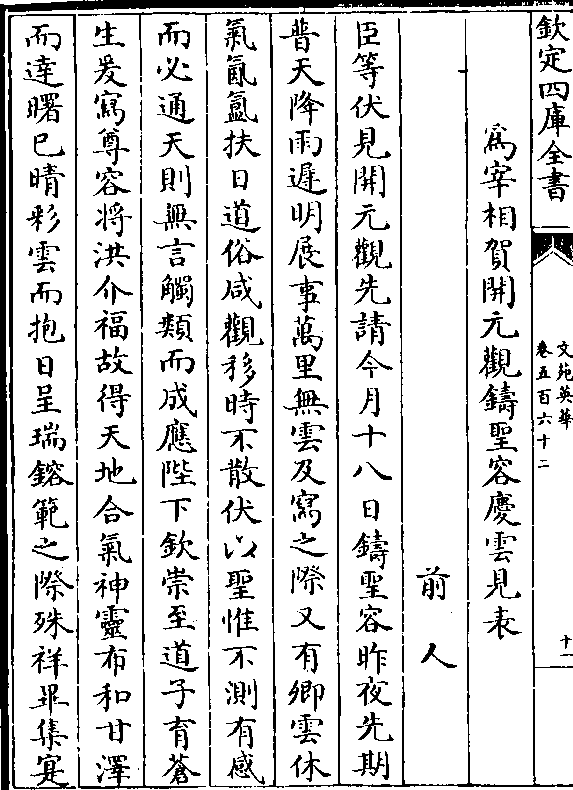 欽定四庫全書
文苑英華
卷五百六十二
十一
爲宰相賀開元觀鑄聖容慶雲見表
前人
臣等伏見開元觀先請今月十八日鑄聖容昨夜先期
普天降雨遲明展事萬里無雲及寫之際又有卿雲休
氣氤氳扶日道俗咸觀移時不散伏以聖惟不測有感
而必通天則無言觸類而成應陛下欽崇至道子育蒼
生爰寫尊容將洪介福故得天地合氣神靈布和甘澤
而達曙已晴彩雲而抱日呈瑞鎔範之際殊祥畢集寔